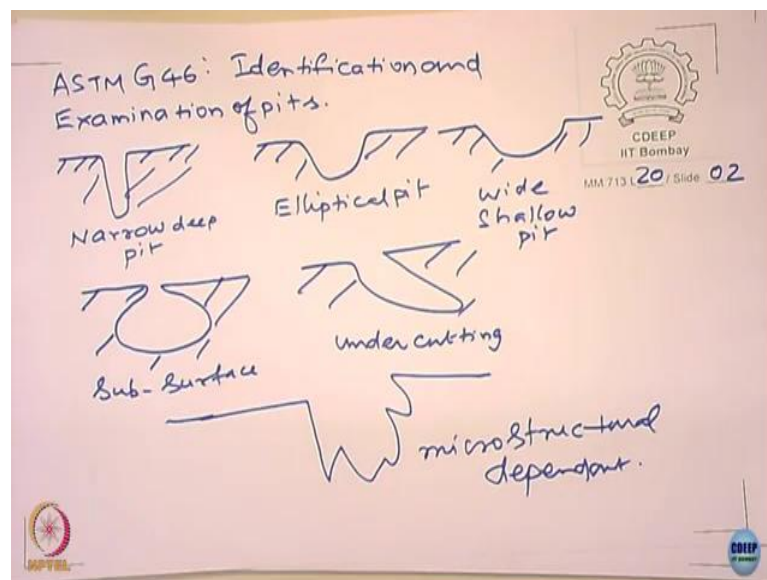 ASTM G46: Identification and
Examination of pits.
CDEEP
IIT Bombay
MM 713 L 20 / Slide 02
Narrow deep
pit
Elliptical pit
wide
shallow
pit
Sub-Surface
under cutting
microstructural
dependant.
NPTEL
CDEEP
IIT BOMBAY